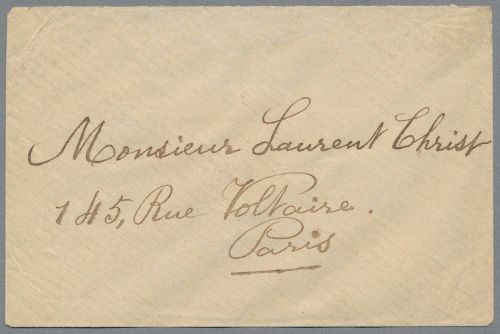 Monsieur Laurent Christ
145, Rue Voltaire.
Paris